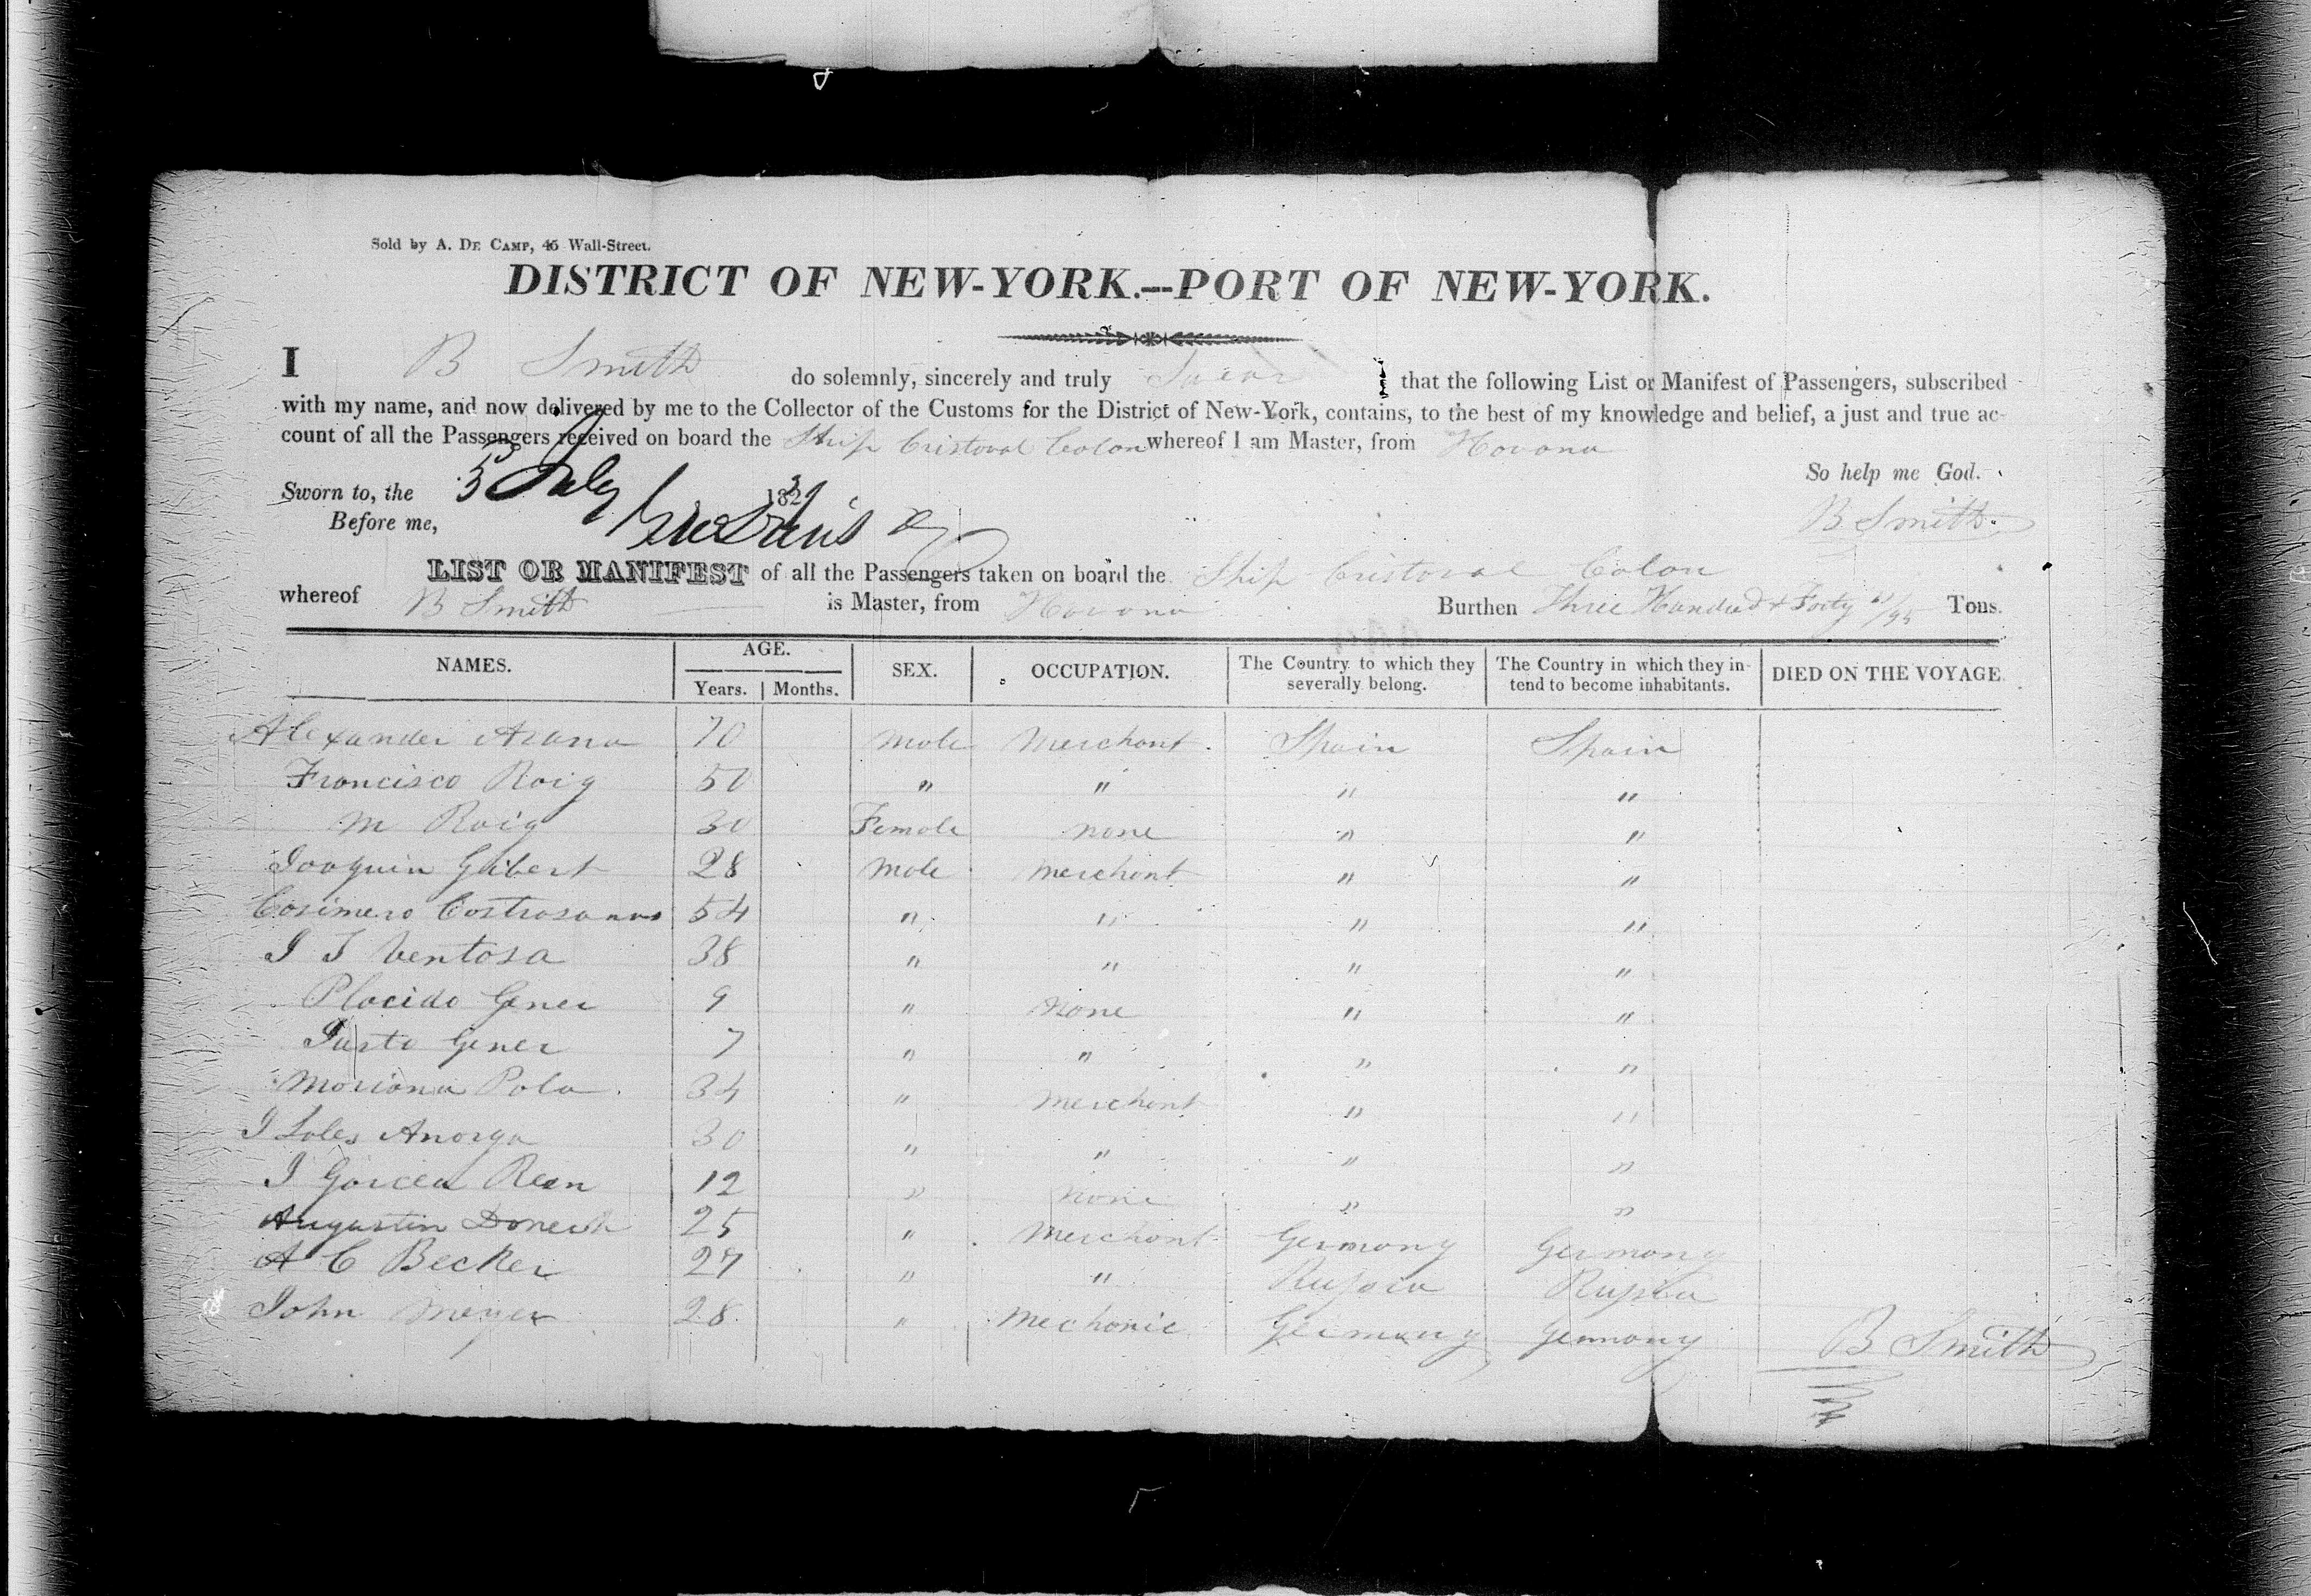 Sold by A. DE CAMP, 46 Wall-Street.
DISTRICT OF NEW-YORK.—PORT OF NEW-YORK.
I B Smith do solemnly, sincerely and truly Swear that the following List or Manifest of Passengers, subscribed
with my name, and now delivered by me to the Collector of the Customs for the District of New-York, contains, to the best of my knowledge and belief, a just and true ac-
count of all the Passengers received on board the Ship Cristoval Colon whereof I am Master, from Havana
So help me God.
Sworn to, the 5 July 183
Before me,
B Smith
LIST OR MANIFEST of all the Passengers taken on board the Ship Cristoval Colon
whereof B Smith is Master, from Havana Burthen Three Hundred & Forty /95 Tons.
NAMES. AGE. Years. Months. SEX. OCCUPATION. The Country to which they severally belong. The Country in which they in-tend to become inhabitants. DIED ON THE VOYAGE.
Alexander Arana 70 male Merchant Spain Spain
Francisco Roig 50 " " " "
M Roig 30 Female none " "
Joaquin Gilbert 28 Male merchant " "
Casimero 54 " " " "
J J Ventosa 38 " " " "
Placido Gener 9 " none " "
Justo Gener 7 " " " "
Mariana Pola 34 " merchant " "
J Soles Anorga 30 " " " "
J Garcea Rean 12 " none " "
Augustin 25 " Merchant Germany Germany
A C Becker 27 " " Russia Russia
John Meyer 28 " Mechanic Germany Germany
B Smith